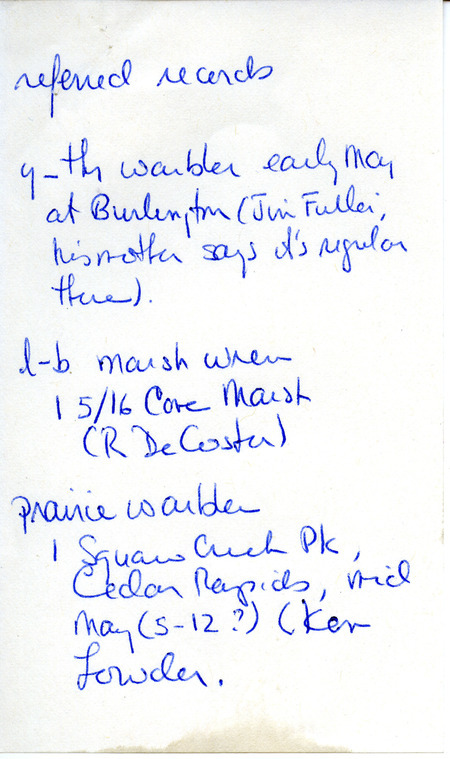 referred records
y-thr warbler early May
at Burlington (Jim Fuller,
his mother says it's regular
there).
l-b marsh wren
1 5/16 Cone Marsh
(R DeCoster)
prairie warbler
1 Squaw Creek Pk,
Cedar Rapids, mid
May (5-12?) (Ken
Lowder.